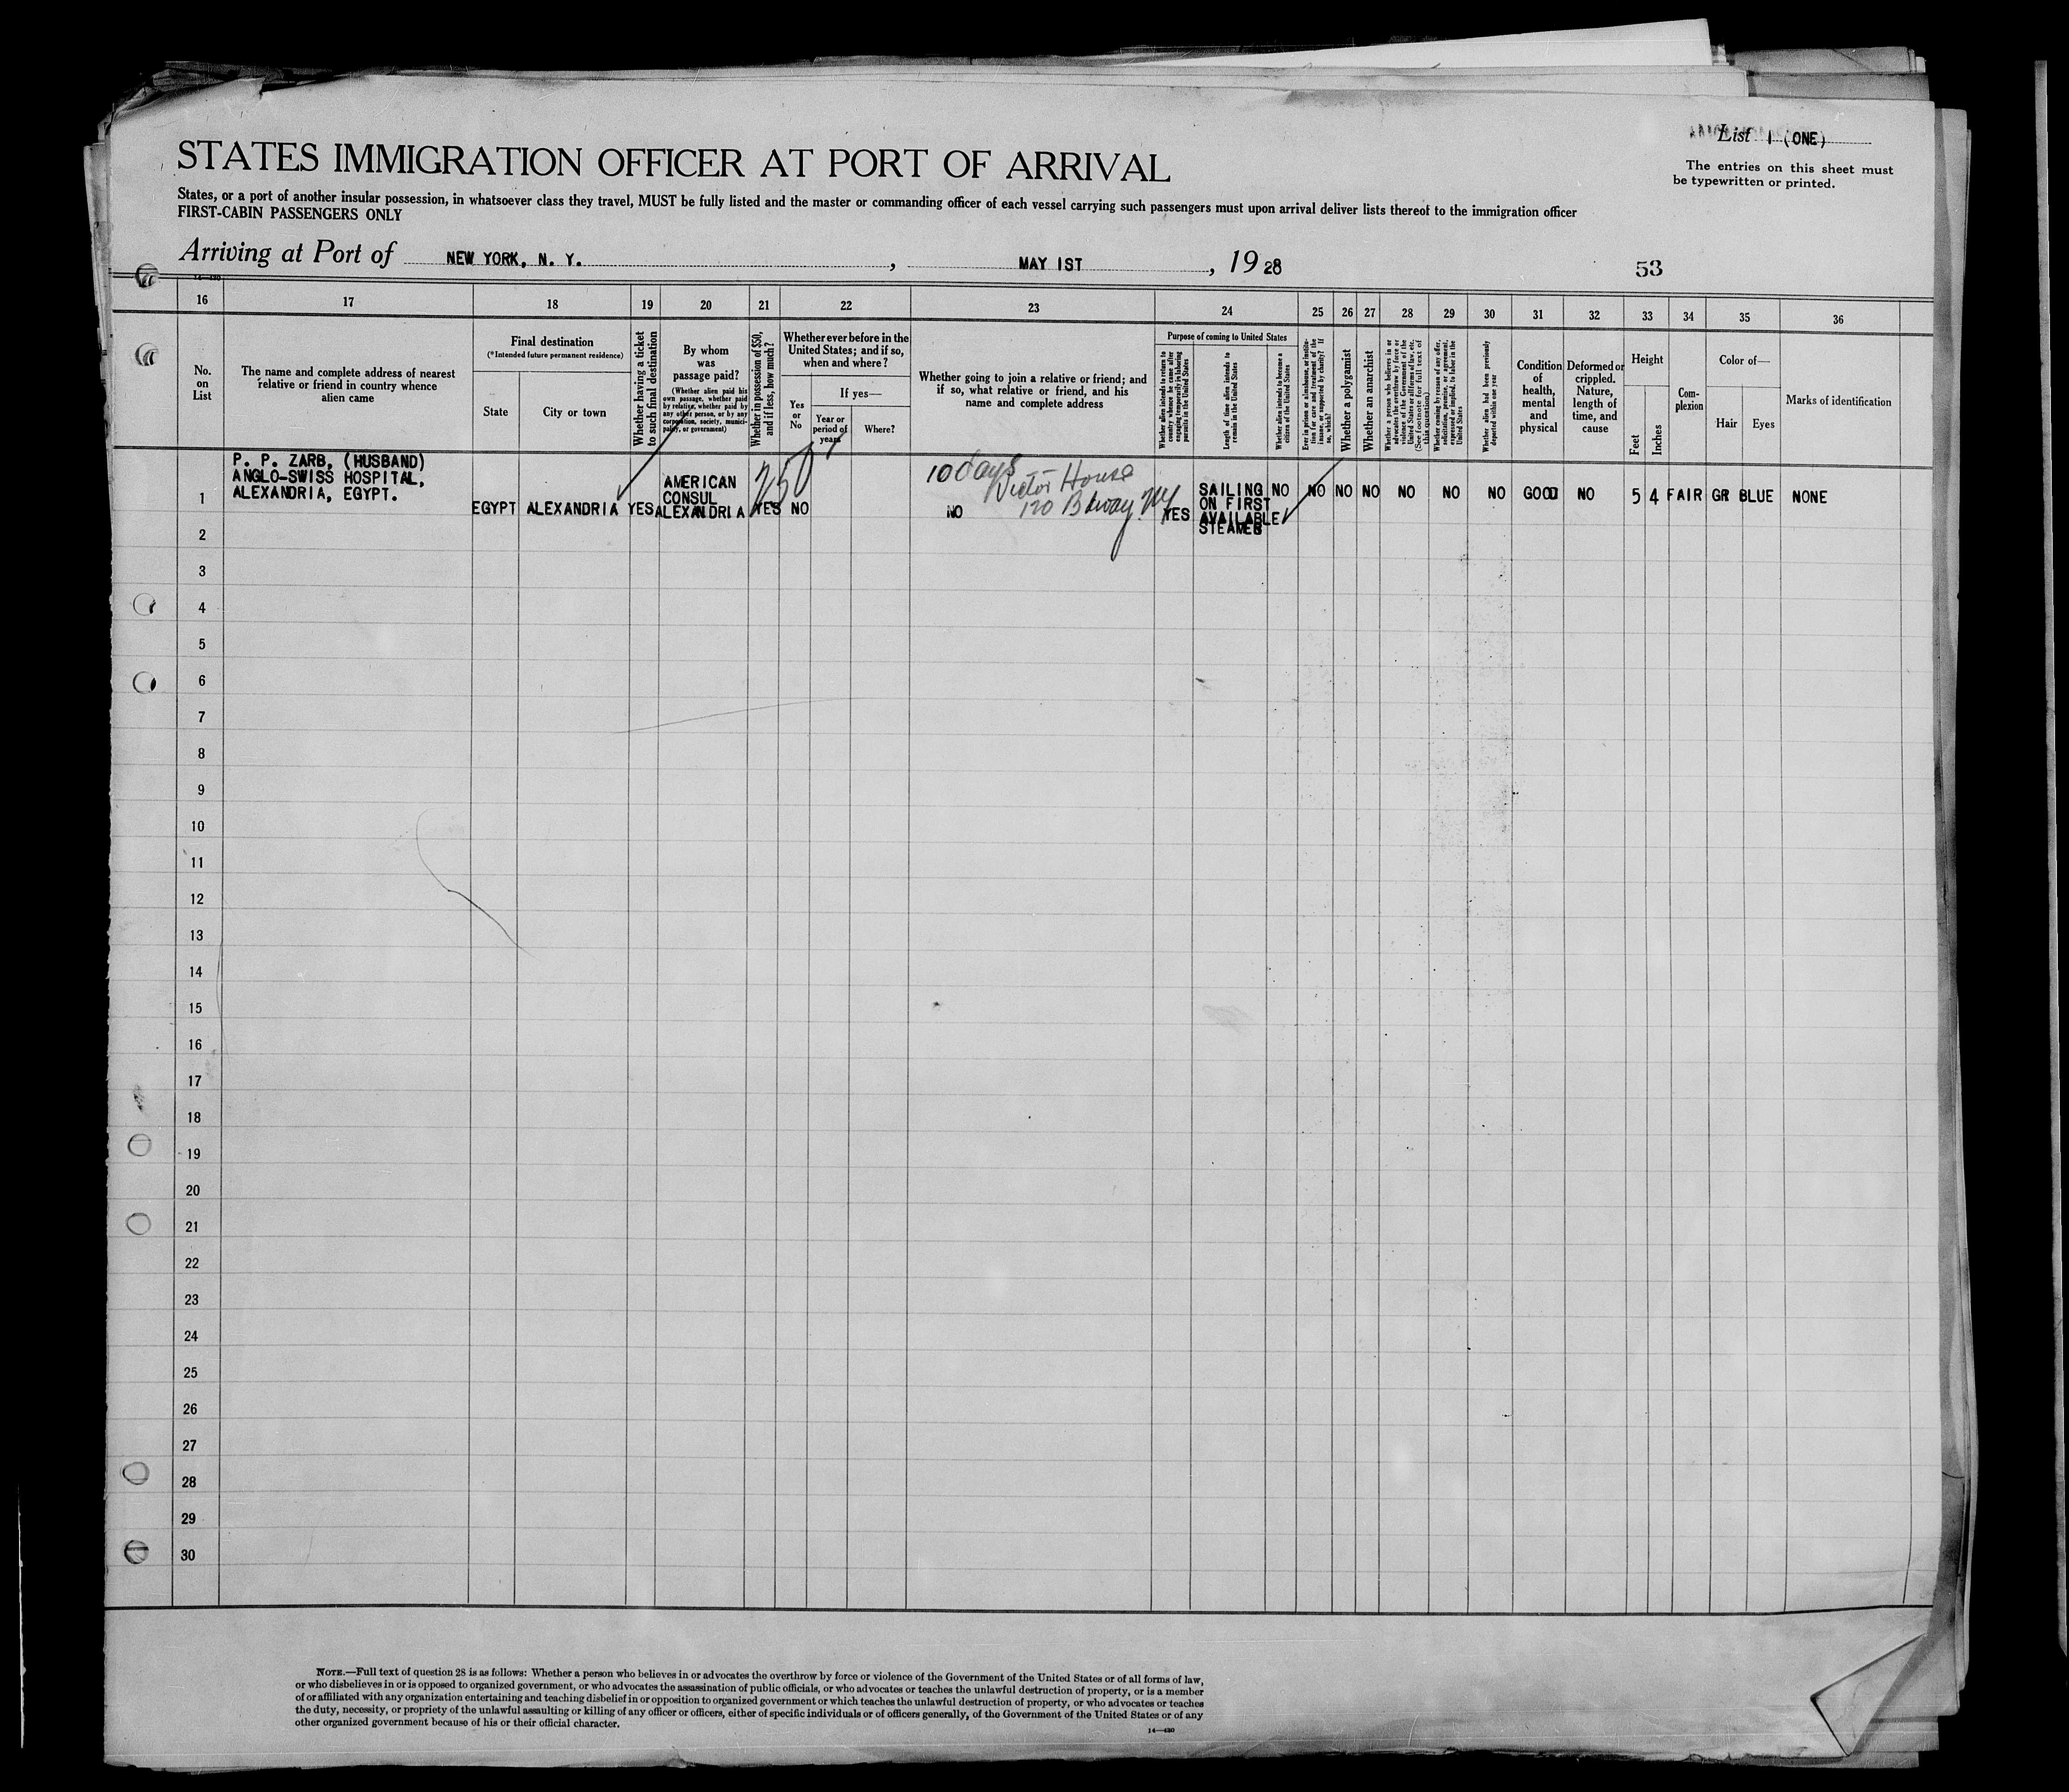 List 1 (ONE)
STATES IMMIGRATION OFFICER AT PORT OF ARRIVAL
The entries on this sheet must
be typewritten or printed.
States, or a port of another insular possession, in whatsoever class they travel, MUST be fully listed and the master or commanding officer of each vessel carrying such passengers must upon arrival deliver lists thereof to the immigration officer
FIRST-CABIN PASSENGERS ONLY
Arriving at Port of NEW YORK, N. Y. , MAY 1ST , 1928
53
14—430
16 17 18 19 20 21 22 23 24 25 26 27 28 29 30 31 32 33 34 35 36
No.
on
List
The name and complete address of nearest
relative or friend in country whence
alien came
Final destination
(*Intended future permanent residence)
State
City or town
Whether having a ticket
to such final destination
By whom
was
passage paid?
(Whether alien paid his
own passage, whether paid
by relative, whether paid by
any other person, or by any
corporation, society, munici-
pality, or government)
Whether in possession of $50,
and if less, how much?
Whether ever before in the
United States; and if so,
when and where?
Yes
or
No
If yes—
Year or
period of
years
Where?
Whether going to join a relative or friend; and
if so, what relative or friend, and his
name and complete address
Purpose of coming to United States
Whether alien intends to return to
country whence he came after
engaging temporarily in laboring
pursuits in the United States
Length of time alien intends to
remain in the United States
Whether alien intends to become a
citizen of the United States
Ever in prison or almshouse, or institu-
tion for care and treatment of the
insane, or supported by charity? If
so, which?
Whether a polygamist
Whether an anarchist
Whether a person who believes in or
advocates the overthrow by force or
violence of the Government of the
United States or all forms of law, etc.
(See footnote for full text of
this question)
Whether coming by reason of any offer,
solicitation, promise, or agreement,
expressed or implied, to labor in the
United States
Whether alien had been previously
deported within one year
Condition
of
health,
mental
and
physical
Deformed or
crippled.
Nature,
length of
time, and
cause
Height
Feet
Inches
Com-
plexion
Color of—
Hair
Eyes
Marks of identification
P. P. ZARB, (HUSBAND)
ANGLO-SWISS HOSPITAL,
ALEXANDRIA, EGYPT.
1
EGYPT ALEXANDRIA YES
AMERICAN
CONSUL
ALEXANDRIA
250
YES NO
10 days
Victor House
120 Bdway NY
NO
YES
SAILING
ON FIRST
AVAILABLE
STEAMER
NO NO NO NO NO NO NO GOOD NO 5 4 FAIR GR BLUE NONE
2
3
4
5
6
7
8
9
10
11
12
13
14
15
16
17
18
19
20
21
22
23
24
25
26
27
28
29
30
NOTE.—Full text of question 28 is as follows: Whether a person who believes in or advocates the overthrow by force or violence of the Government of the United States or of all forms of law,
or who disbelieves in or is opposed to organized government, or who advocates the assassination of public officials, or who advocates or teaches the unlawful destruction of property, or is a member
of or affiliated with any organization entertaining and teaching disbelief in or opposition to organized government or which teaches the unlawful destruction of property, or who advocates or teaches
the duty, necessity, or propriety of the unlawful assaulting or killing of any officer or officers, either of specific individuals or of officers generally, of the Government of the United States or of any
other organized government because of his or their official character.
14—430